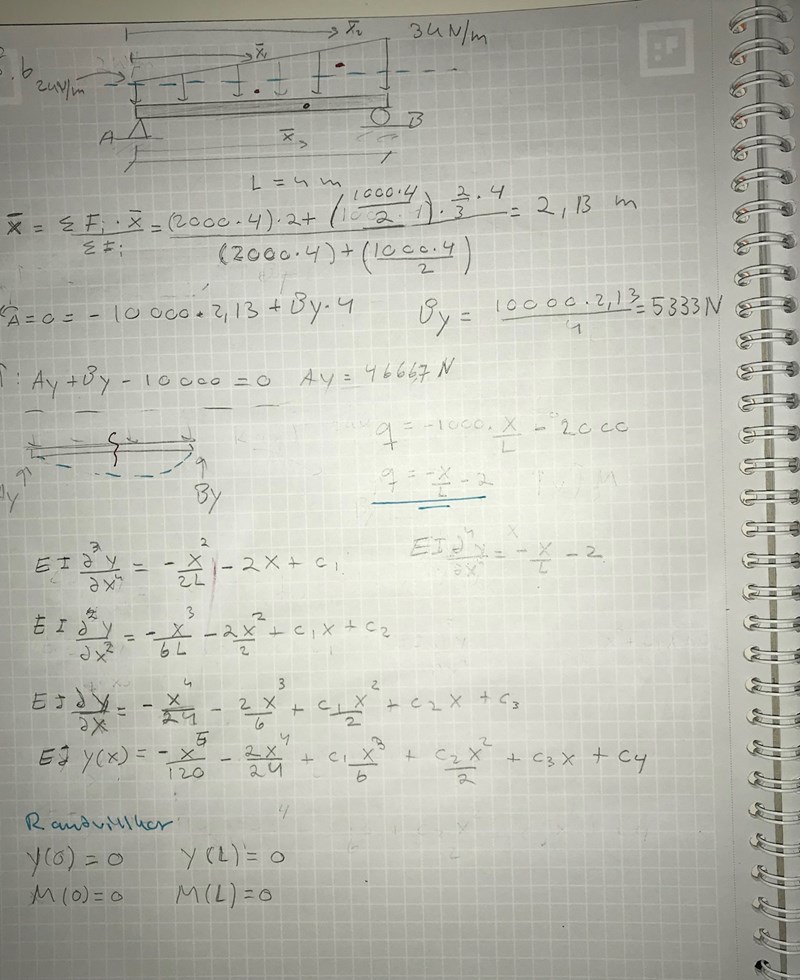 x̄₂
3kN/m
.6
x̄₁
2kN/m
A
B
x̄
L = 4 m
x̄ = ΣFᵢ · x̄ / ΣFᵢ = ((2000·4)·2 + (1000·4/2)·2/3·4) / ((2000·4)+(1000·4/2)) = 2,13 m
A=0= -10000·2,13 + By·4 By = 10000·2,13/4 = 5333N
↑: Ay+By-10000=0 Ay = 46667 N
q = -1000·x/L - 2000
q = -x/L - 2
By
EI ∂³y/∂x⁴ = -x²/2L - 2x + c₁ EI ∂⁴y/∂x⁴ = -x/L - 2
EI ∂²y/∂x² = -x³/6L - 2x²/2 + c₁x + c₂
EI ∂y/∂x = -x⁴/24 - 2x³/6 + c₁x²/2 + c₂x + c₃
EI y(x) = -x⁵/120 - 2x⁴/24 + c₁x³/6 + c₂x²/2 + c₃x + c₄
Randvillkor
y(0) = 0 y(L) = 0
M(0)=0 M(L)=0